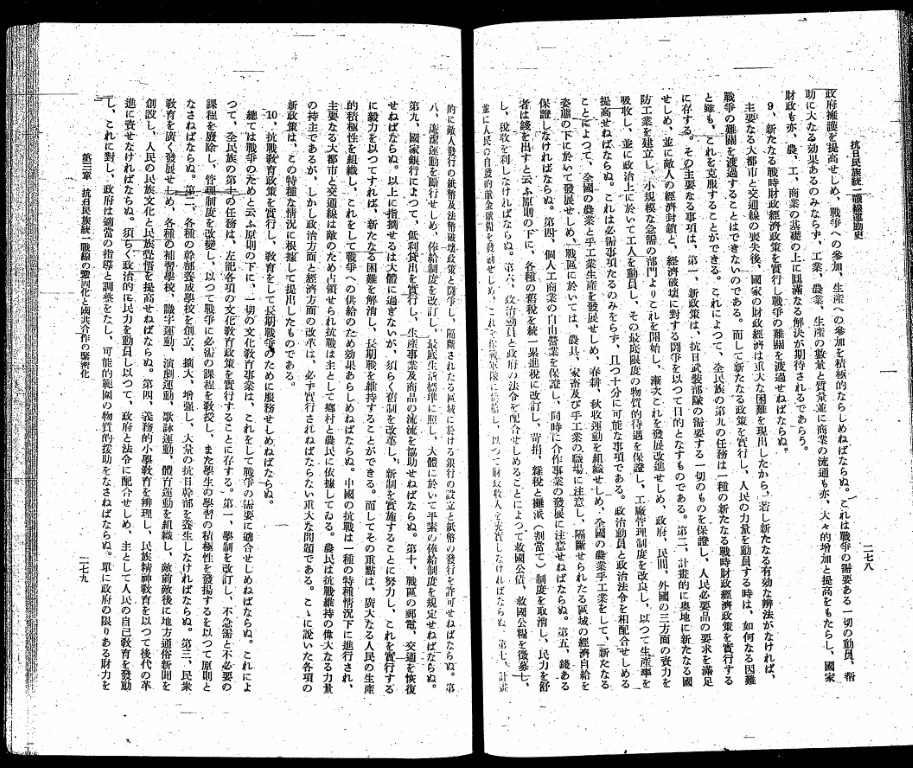 抗日民族統一戰線運動史
二七八
政府擁護を高せしめ、戰爭への參加、生產への參加を積極的ならしめねばならぬ。これは戰爭の需要ある一切の動員、幇
助に大なる効果あるのみならず、工業、農業、生產の數量と質量並に商業の流通も亦、大々的增加と提高をもたらし、國家
財政も亦、農、工、商業の基礎の上に圓滿なる解決が期待されるであらう。
9、新たなる戰時財政經濟政策を實行し戰爭の難關を渡過せねばならぬ。
主要なる大都市と交通線の喪失後、國家の財政經濟は重大な困難を現出したから、若し新たなる有効な辨法がなければ、
戰爭の難關を渡過することはできないのである。而して新たなる政策を實行し、人民の力量を動員する時は、如何なる困難
と雖も、これを克服することができる。これによつて、全民族の第九の任務は一種の新たなる戰時財政經濟政策を實行する
に存する。その主要なる事項は、第一、新政策は、抗日武裝部隊の需要する一切のものを保證し、人民必要品の要求を滿足
せしめ、並に敵人の經濟封鎖と、經濟破壞に對する鬪爭を以つて目的となすものである。第二、計畫的に奧地に新たなる國
防工業を建立し、小規模な急需の部門よりこれを開始し、漸次これを發展改進せしめ、政府、民間、外國の三方面の資力を
吸收し、並に政治上に於いて工人を動員し、その最底限度の物質的待遇を保證し、工廠管理制度を改良し、以つて生產率を
提高せねばならぬ。これは必需事項たるのみをらず、且つ十分に可能な事項である。政治動員と政治法令を相配合せしめる
ことによつて、全國の農業と手工業生產を發展せしめ、春耕、秋收運動を組織せしめ、全國の農業手工業をして、新たなる
姿態の下に於いて發展せしめ、戰區に於いては、農具、家畜及び手工業の職場に注意し、隔斷せられたる區域の經濟自給を
保證しなければならぬ。第四、個人工商業の自由營業を保證し、同時に合作事業の發展に注意せねばならぬ。第五、錢ある
者は錢を出すと云ふ原則の下に、各種の舊稅を統一累進稅に改訂し、苛捐、雜稅と攤派(割當て)制度を取消し、民力を舒
し、稅收を利しなければならぬ。第六、政治動員と政府の法令を配合せしめることによつて救國公債、救國公糧を徵募し、
並に人民の自發的獻金獻糧を發動せしめ、これを作戰軍隊に給し、以つて財政收入を充實しなければならぬ。第七、計畫
的に敵人發行の紙幣及法幣破壞政策と鬪爭し、隔斷されたる區域に於ける銀行の設立と紙幣の發行を許可せねばならぬ。第
八、運動を勵行せしめ、俸給制度を改訂し、最底生活標準に照し、大體に於いて平素の俸給制度を規定せねばならぬ。
第九、國家銀行によつて、低利貸出しを實行し、生產事業及商品の流流を協助せねばならぬ。第十、戰區の郵電、交通を恢復
せねばならぬ。以上に指摘せるは大體に過ぎないが、須らく舊制を改革し、新制を實施することに努力し、これを實行する
に毅力を以つてすれば、新たなる困難を解消し、長期戰を維持することができる。而してその重點は、廣大なる人民の生產
的積極性を組織し、これをして戰爭への供給のため効果あらしめねばならぬ。中國の抗戰は一種の特種情況下に進行され、
主要なる大都市と交通線は敵のため占領せられ抗戰は主として鄉村と農民に依據してゐる。農民は抗戰維持の偉大なる力量
の持主であるが、しかし政治方面と經濟方面の改革は、必ず實行されねばならない重大な問題である。こゝに說いた各項の
新政策は、この特種な情況に根據して提出したものである。
10、抗戰教育政策を實行し、教育をして長期戰爭のために服務せしめねばならぬ。
總ては戰爭のためと云ふ原則の下に、一切の文化教育事業は、これをして戰爭の需要に適合せしめねばならぬ。これによ
つて、全民族の第十の任務は、左記各項の文化教育政策を實行することに存する。第一、學制を改訂し、不急需と不必要の
課程を廢除し、管理制度を改變し、以つて戰爭に必需の課程を敎授し、また學生の學習の積極性を發揚するを以つて原則と
なさねばならぬ。第二、各種の幹部養成學校を創立、擴大、增强し、大衆の抗日幹部を養生しなければならぬ。第三、民衆
敎育を廣く發展せしめ、各種の補習學校、識字運動、演劇運動、歌詠運動、體育運動を組織し、敵前敵後に地方通俗新聞を
創設し、人民の民族文化と民族覺悟を提高せねばならぬ。第四、義務的小學敎育を辨理し、民族精神敎育を以つて後代の革
進に資せなければならぬ。須らく政治的に民力を動員し以つて、政府と法令に配合せしめ、主として人民の自己敎育を發動
し、これに對し、政府は適當の指導と調整をなし、可能的範圍の物質的援助をなさねばならぬ。單に政府の限りある財力を
第三章 抗日民族統一戰線の鞏固化と國共合作の緊密化
二七九